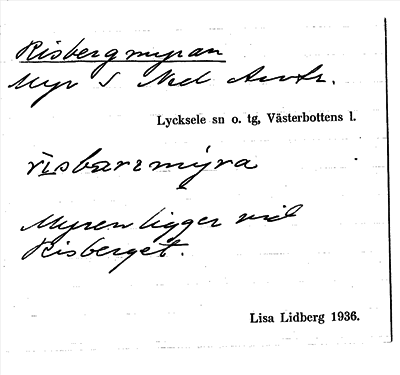 Risbergmyran
Myr S Ned Avotr.
Lycksele sn o. tg, Västerbottens l.
risbarrmýra
Myren ligger vid
Risberget.
Lisa Lidberg 1936.